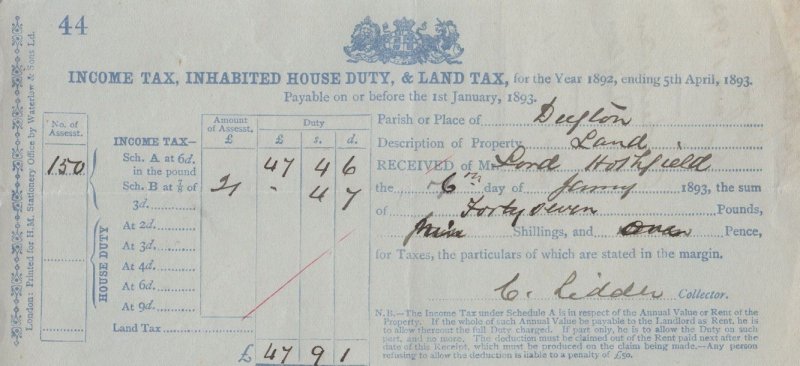 44
INCOME TAX, INHABITED HOUSE DUTY, & LAND TAX, for the Year 1892, ending 5th April, 1893.
Payable on or before the 1st January, 1893.
London: Printed for H.M. Stationery Office by Waterlow & Sons Ld.
No. of Assesst.
150
Amount of Assesst. £
Duty
£ s. d.
INCOME TAX—
Sch. A at 6d. in the pound 47 4 6
Sch. B at ⅞ of 3d. 21 " 4 7
HOUSE DUTY
At 2d.
At 3d.
At 4d.
At 6d.
At 9d.
Land Tax
£ 47 9 1
Parish or Place of Dufton
Description of Property Land
RECEIVED of Mr Lord Hothfield
the 6th day of Jany 1893, the sum
of Forty seven Pounds,
Nine Shillings, and Pence,
for Taxes, the particulars of which are stated in the margin.
C. Collector.
N.B.—The Income Tax under Schedule A is in respect of the Annual Value or Rent of the
Property. If the whole of such Annual Value be payable to the Landlord as Rent, he is
to allow thereout the full Duty charged. If part only, he is to allow the Duty on such
part, and no more. The deduction must be claimed out of the Rent paid next after the
date of this Receipt, which must be produced on the claim being made.—Any person
refusing to allow the deduction is liable to a penalty of £50.